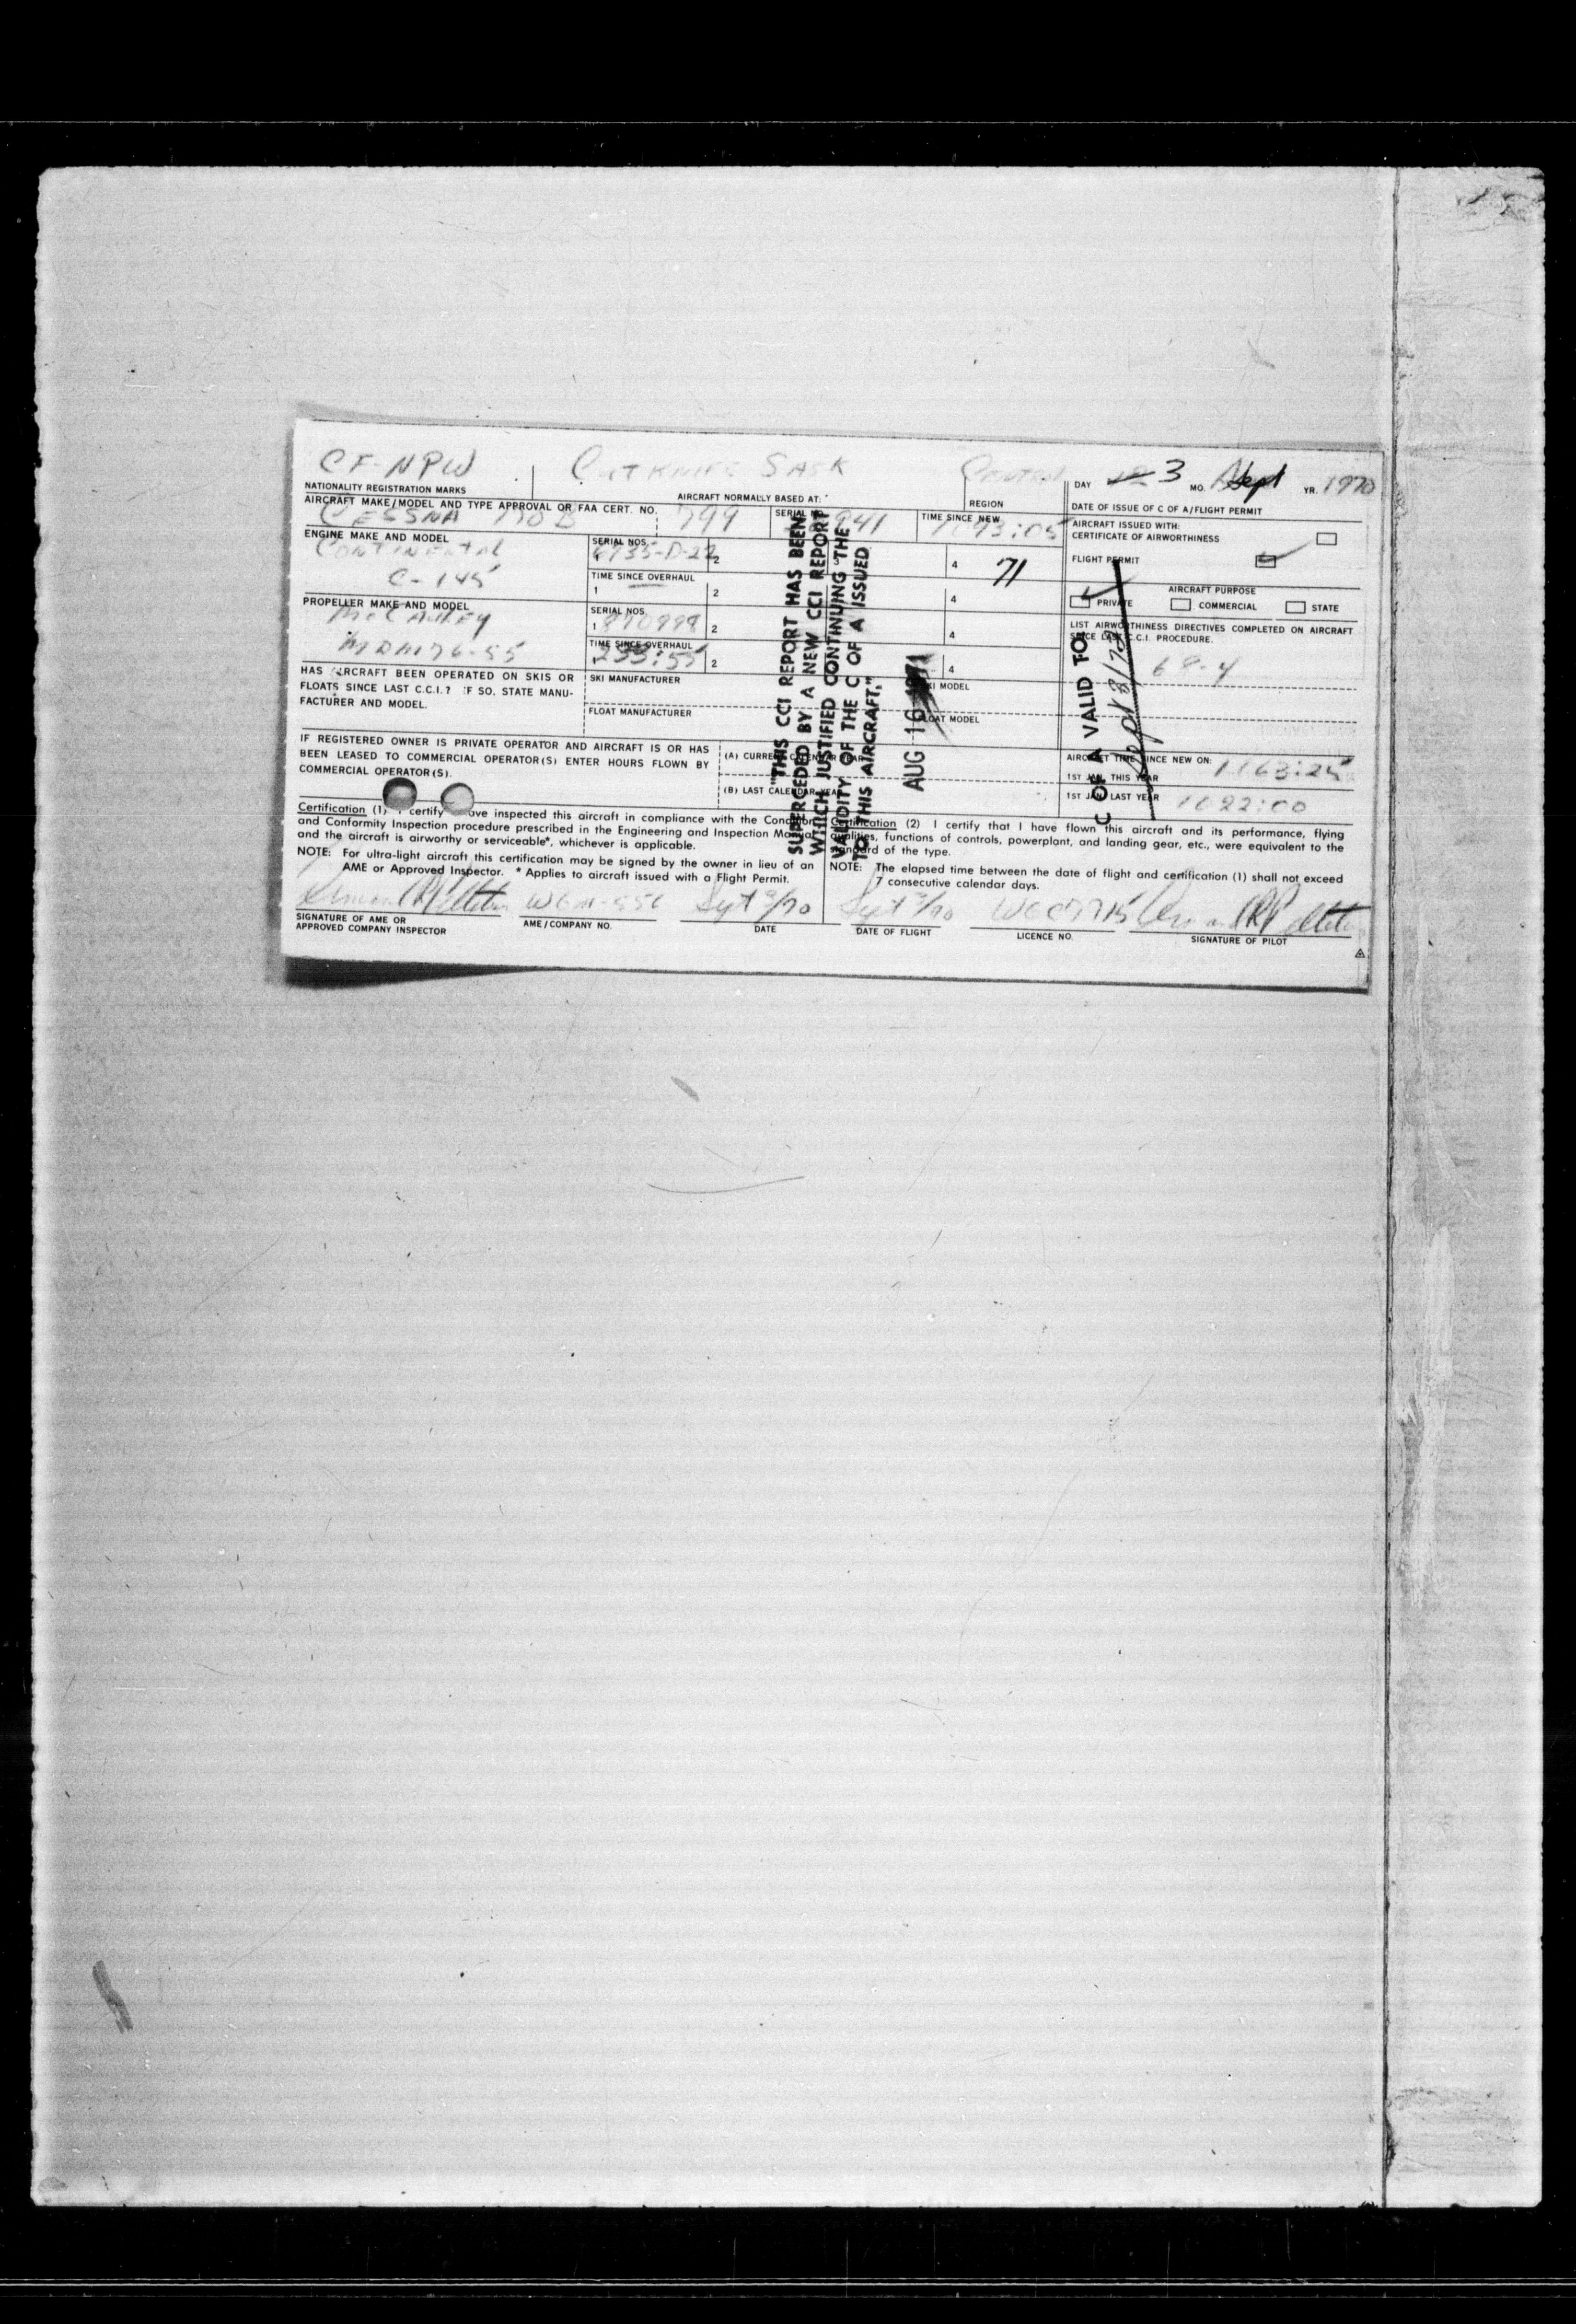 CF-NPW CUTKNIFE SASK CENTRAL DAY 3 MO. Sept YR. 1970
NATIONALITY REGISTRATION MARKS AIRCRAFT NORMALLY BASED AT: REGION DATE OF ISSUE OF C OF A/FLIGHT PERMIT
AIRCRAFT MAKE/MODEL AND TYPE APPROVAL OR FAA CERT. NO. SERIAL NO. TIME SINCE NEW
CESSNA 170 B 799
AIRCRAFT ISSUED WITH:
CERTIFICATE OF AIRWORTHINESS
FLIGHT PERMIT
ENGINE MAKE AND MODEL SERIAL NOS.
CONTINENTAL 1 2 3 4 71
C-145 TIME SINCE OVERHAUL
1 2 4
AIRCRAFT PURPOSE
PRIVATE COMMERCIAL STATE
PROPELLER MAKE AND MODEL SERIAL NOS.
McCAULEY 1 2 4
TIME SINCE OVERHAUL
233:55 2 4
LIST AIRWORTHINESS DIRECTIVES COMPLETED ON AIRCRAFT
SINCE LAST C.C.I. PROCEDURE.
68-4
HAS AIRCRAFT BEEN OPERATED ON SKIS OR
FLOATS SINCE LAST C.C.I.? IF SO, STATE MANU-
FACTURER AND MODEL.
SKI MANUFACTURER SKI MODEL
FLOAT MANUFACTURER FLOAT MODEL
IF REGISTERED OWNER IS PRIVATE OPERATOR AND AIRCRAFT IS OR HAS
BEEN LEASED TO COMMERCIAL OPERATOR(S) ENTER HOURS FLOWN BY
COMMERCIAL OPERATOR(S).
(A) CURRENT CALENDAR YEAR
(B) LAST CALENDAR YEAR
AIRCRAFT TIME SINCE NEW ON:
1ST JAN. THIS YEAR 1163:25
1ST JAN. LAST YEAR 1022:00
"THIS CCI REPORT HAS BEEN
SUPERCEDED BY A NEW CCI REPORT
WHICH JUSTIFIED CONTINUING THE
VALIDITY OF THE C OF A ISSUED
TO THIS AIRCRAFT,"
AUG 16 1971
C OF A VALID TO
Certification (1) I certify have inspected this aircraft in compliance with the Condition
and Conformity Inspection procedure prescribed in the Engineering and Inspection Manual
and the aircraft is airworthy or serviceable*, whichever is applicable.
NOTE: For ultra-light aircraft this certification may be signed by the owner in lieu of an
AME or Approved Inspector. * Applies to aircraft issued with a Flight Permit.
Certification (2) I certify that I have flown this aircraft and its performance, flying
qualities, functions of controls, powerplant, and landing gear, etc., were equivalent to the
standard of the type.
NOTE: The elapsed time between the date of flight and certification (1) shall not exceed
7 consecutive calendar days.
SIGNATURE OF AME OR
APPROVED COMPANY INSPECTOR
AME/COMPANY NO. DATE DATE OF FLIGHT LICENCE NO. SIGNATURE OF PILOT